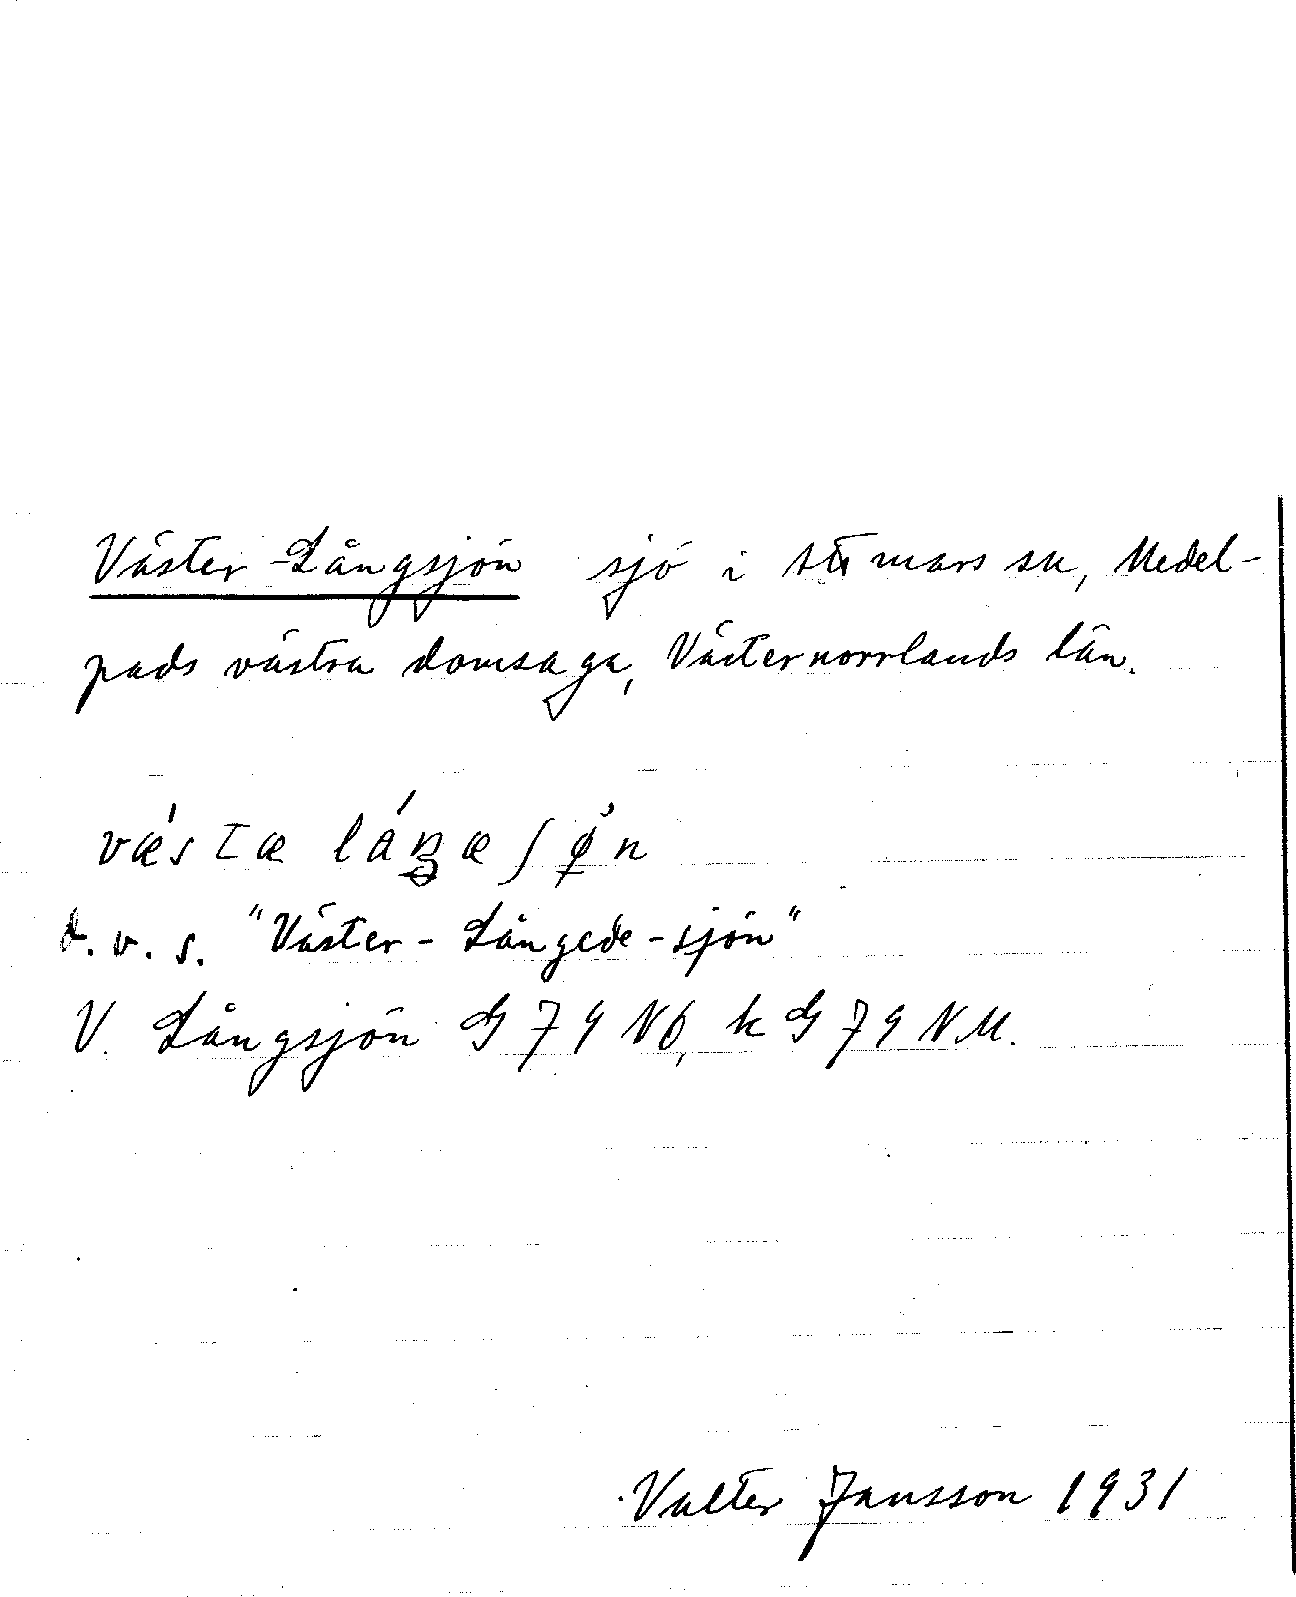 Väster-Långsjön sjö i Attmars sn, Medel-
pads västra domsaga, Västernorrlands län.
vǽsta lá sø̀n
d.v.s. "Väster-Långede-sjön"
V. Långsjön G 79 NÖ, k G 79 NM.
Valter Jansson 1931